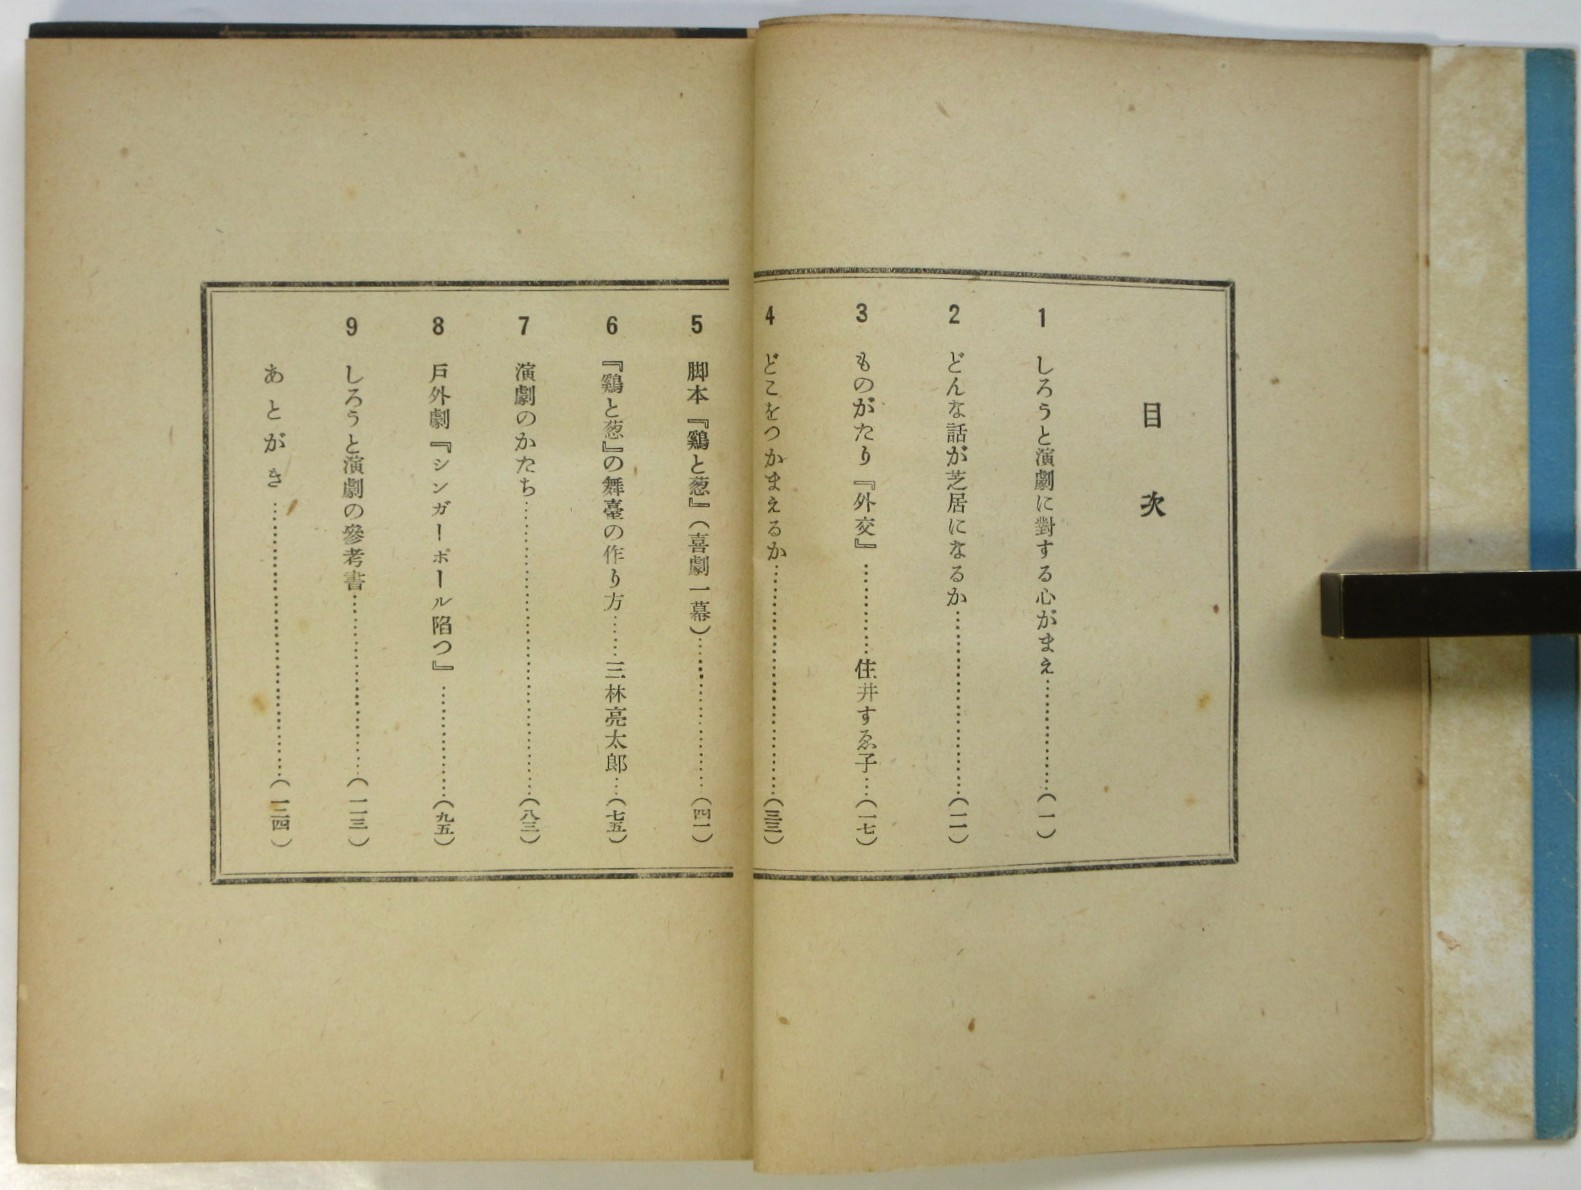 目次
1 しろうと演劇に對する心がまえ…………(一)
2 どんな話が芝居になるか…………(一一)
3 ものがたり『外交』…………住井すゑ子…(一七)
4 どこをつかまえるか…………(三三)
5 脚本『鷄と葱』(喜劇一幕)…………(四一)
6 『鷄と葱』の舞臺の作り方……三林亮太郎…(七五)
7 演劇のかたち…………(八三)
8 戸外劇『シンガーポール陷つ』…………(九五)
9 しろうと演劇の參考書…………(一一三)
あとがき…………(一二四)